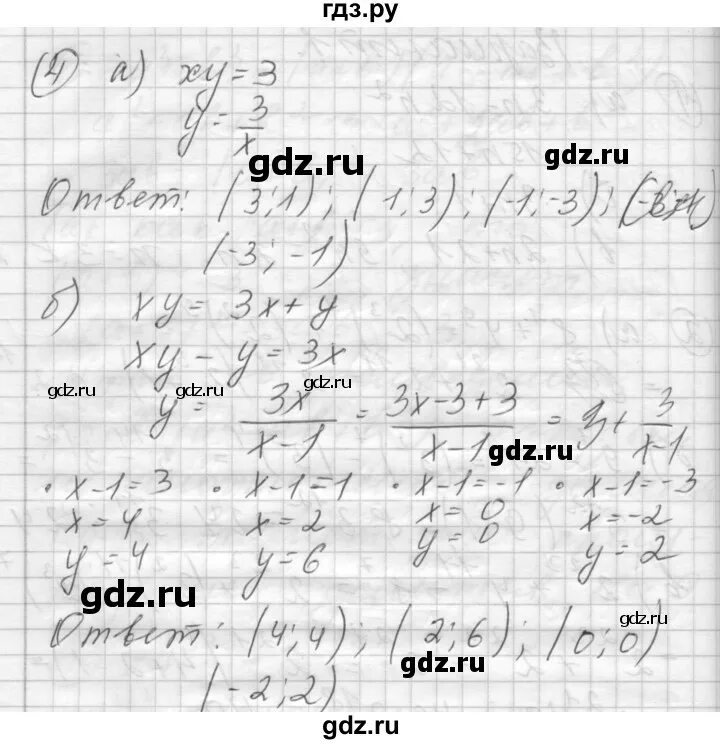 гдз.ру
④ а) xy = 3
y = 3/x
gdz.ru gdz.ru
Ответ: (3;1); (1;3); (-1;-3);
(-3; -1)
б) xy = 3x + y
xy - y = 3x
gdz.ru gdz.ru gdz.ru
y = 3x/(x-1) = (3x-3+3)/(x-1) = 3 + 3/(x-1)
gdz.ru
• x-1=3 • x-1=1 • x-1=-1 • x-1=-3
x=4 x=2 x=0 x=-2
y=4 y=6 y=0 y=2
gdz.ru
Ответ: (4;4); (2;6); (0;0)
gdz.ru
gdz.ru
(-2;2)
gdz.ru